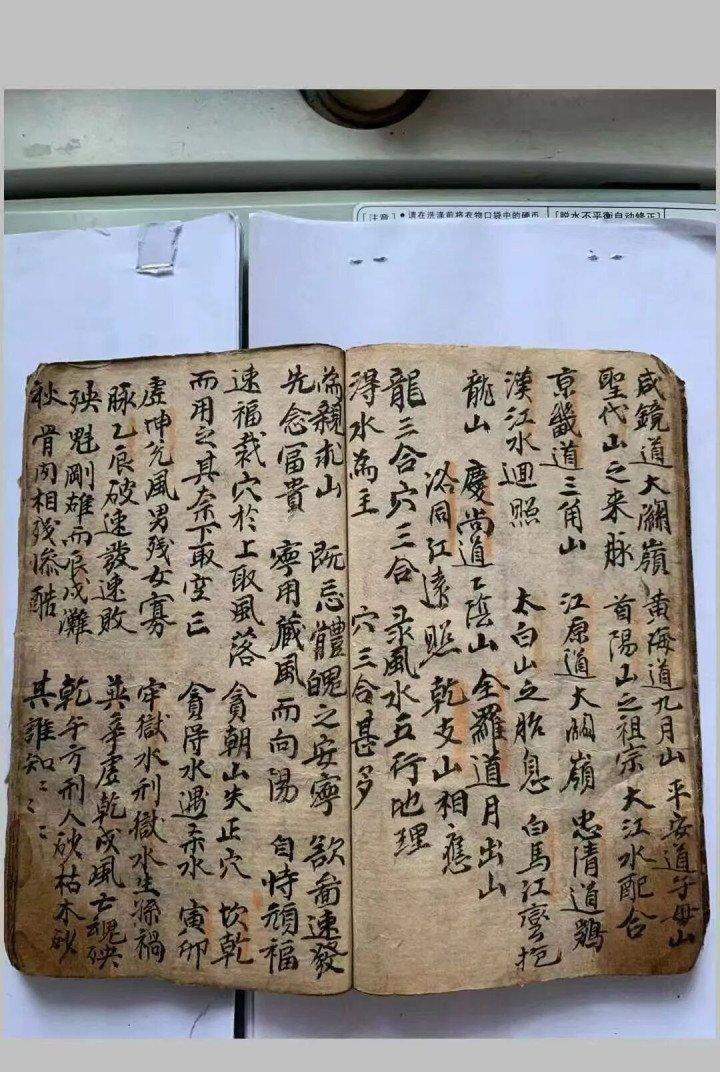 [注意]●请在洗涤前将衣物口袋中的硬币
[脱水不平衡自动修正]
咸鏡道大關嶺 黄海道九月山 平安道子母山
聖代山之来脉 首陽山之祖宗 大江水配合
京畿道三角山 江原道大關嶺 忠清道鷄
漢江水廻照 太白山之胎息 白馬江彎抱
龍山 慶尚道工陰山 全羅道月出山
洛同江遠照 乾支山相應
龍三合穴三合 录風水五行地理
淂水為主 穴三合甚多
為親求山 既忌體魄之安寧 欲啚速發
先念冨貴 寧用蔵風而向陽 自恃頑福
速福裁穴於上取風落 貪朝山失正穴 坎乾
而用之其奈下取空亡 貪淂水遇杀水 寅卯
虚坤兊風男残女寡 牢獄水刑獄水生孫禍
脉乙辰破速發速敗 英辛虚乾戌風亡魂殃
殃魁剛雄而辰戌灘 乾午方刑人砂枯木砂
秋骨肉相残惨酷 其誰知